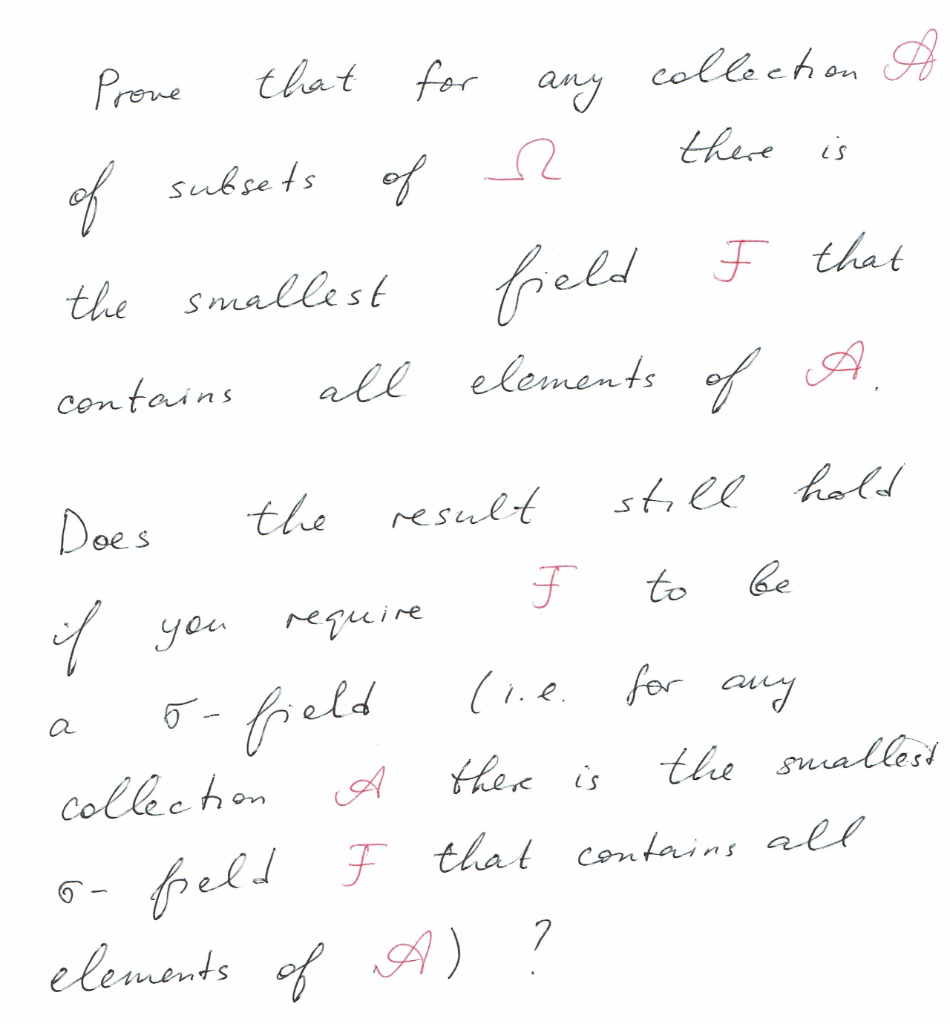 Prove that for any collection 𝒜
of subsets of Ω there is
the smallest field ℱ that
contains all elements of 𝒜.
Does the result still hold
if you require ℱ to be
a σ-field (i.e. for any
collection 𝒜 there is the smallest
σ-field ℱ that contains all
elements of 𝒜) ?